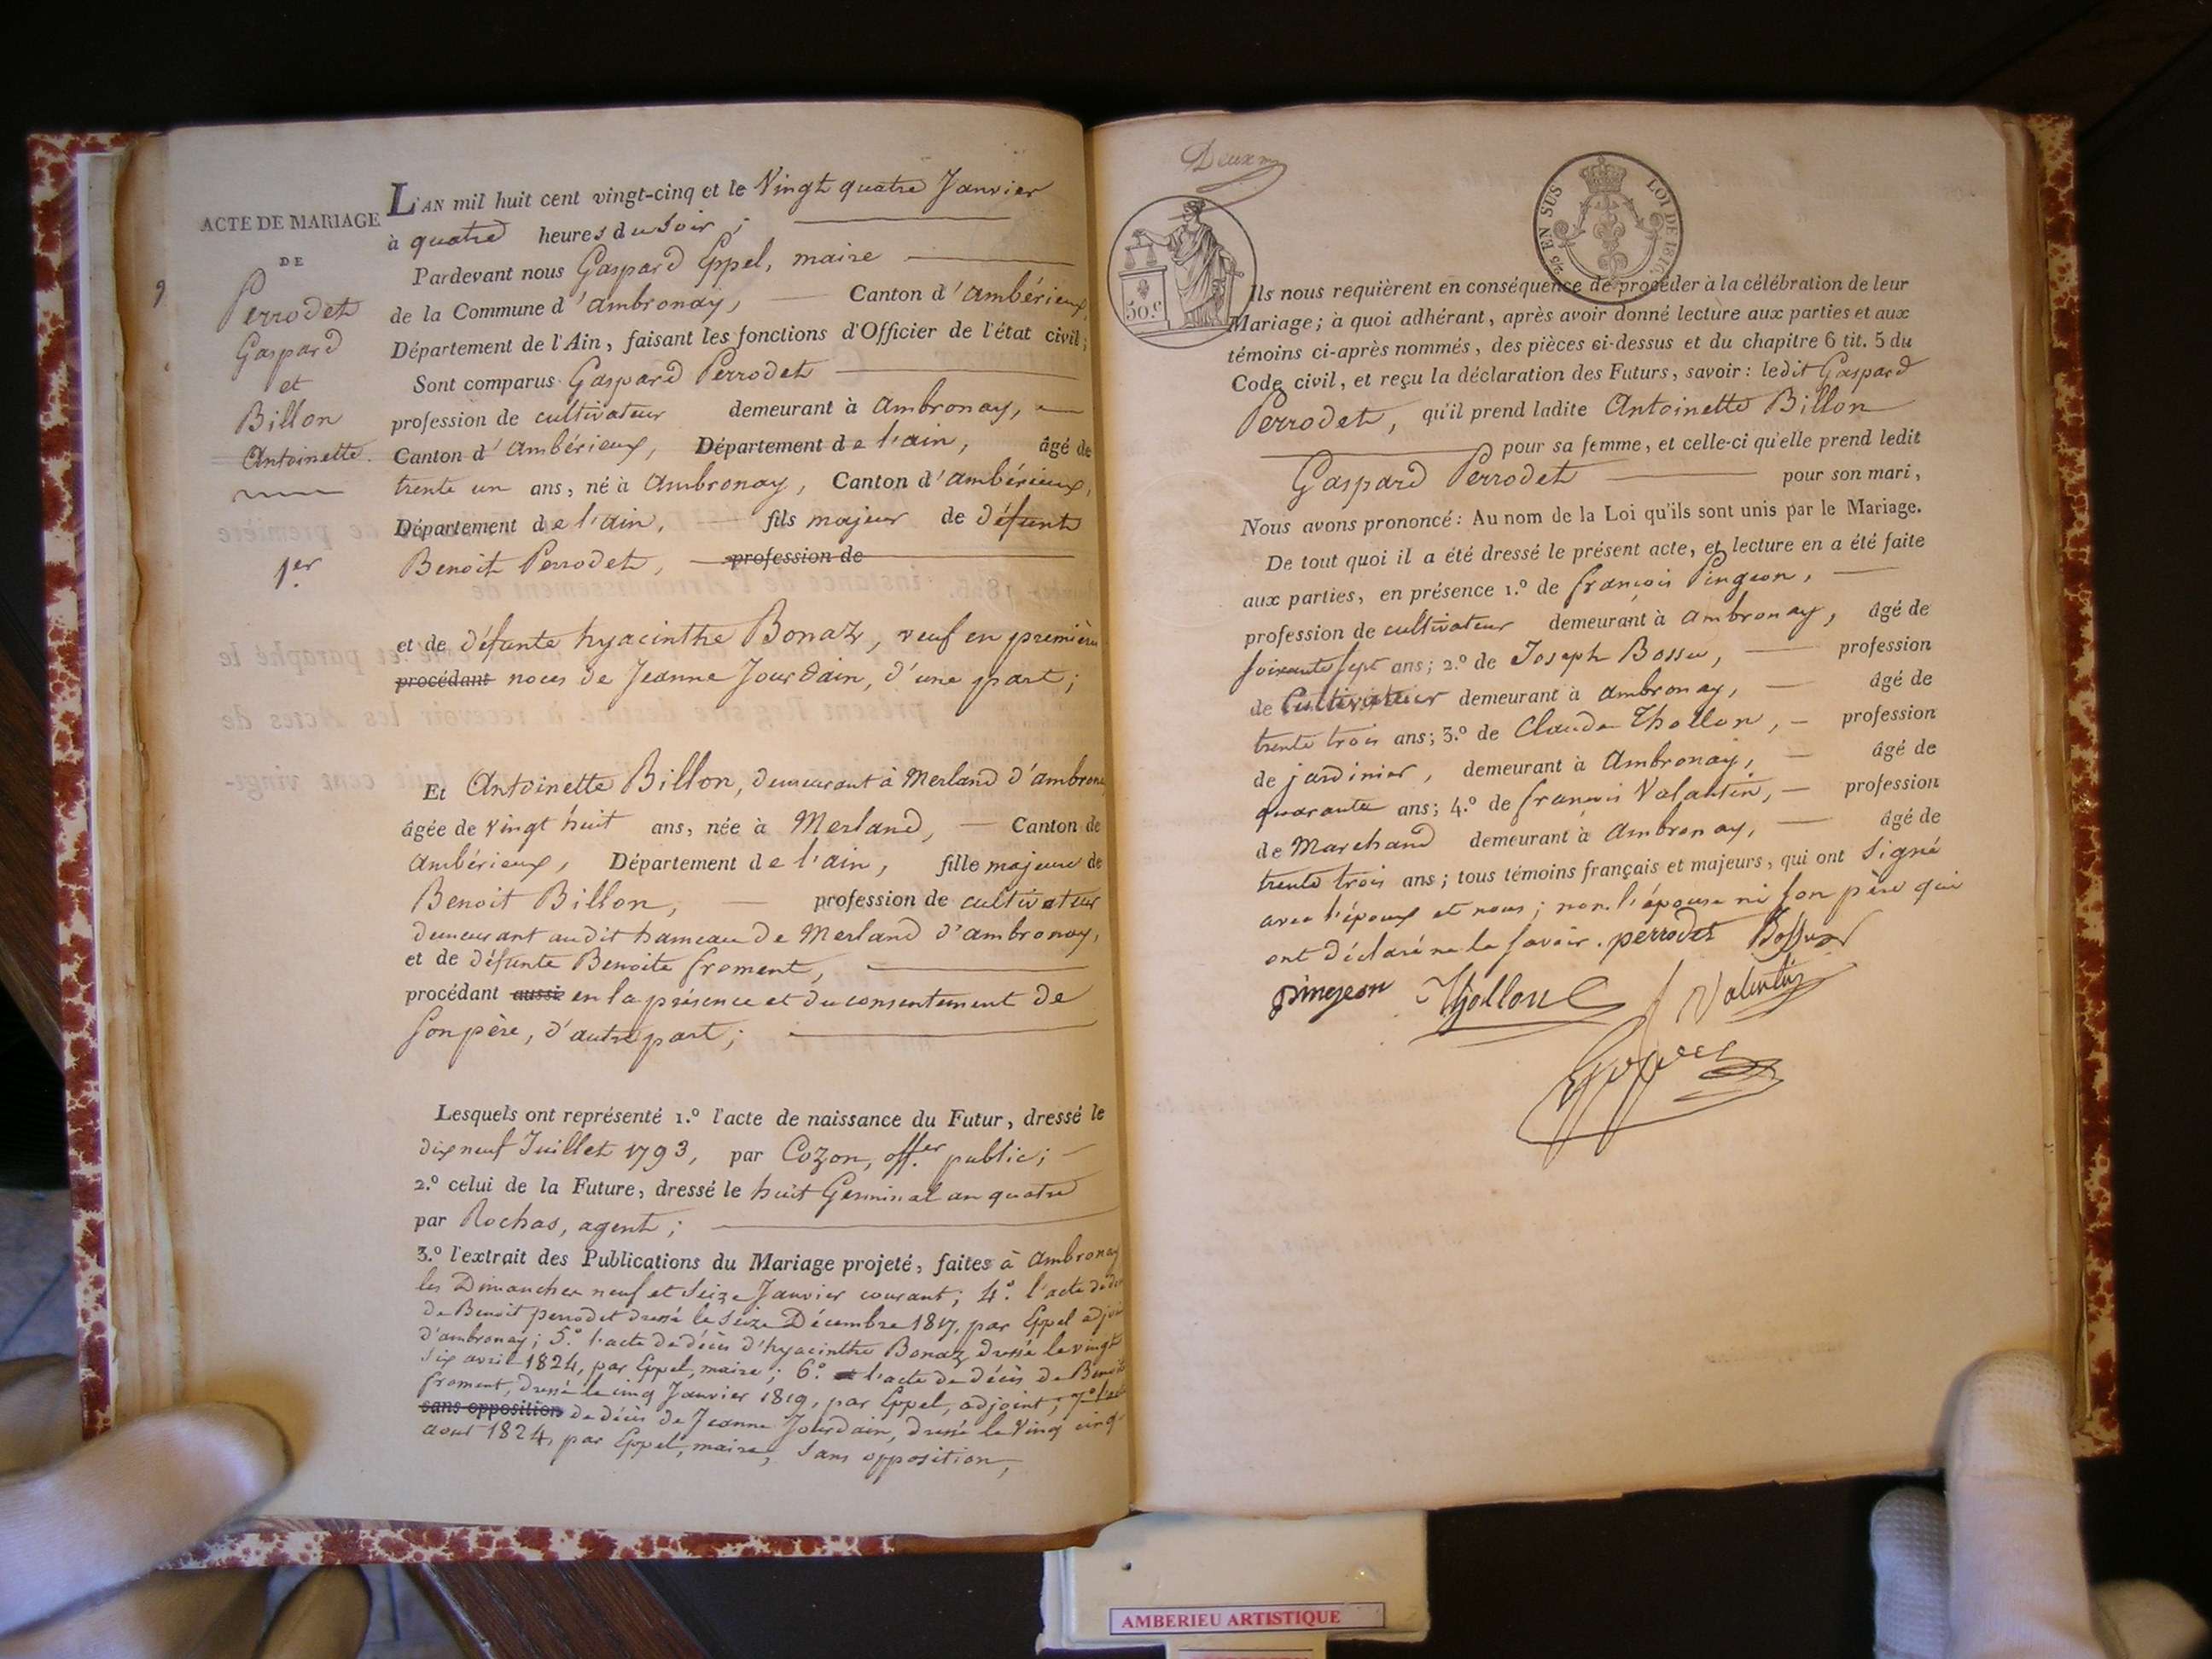 ACTE DE MARIAGE
DE
Perrodet
Gaspard
et
Billon
Antoinette.
1er
9
L'AN mil huit cent vingt-cinq et le Vingt quatre Janvier
à quatre heures du soir ;
Pardevant nous Gaspard Eppel, maire
de la Commune d'ambronay, Canton d'ambérieux,
Département de l'Ain, faisant les fonctions d'Officier de l'état civil ;
Sont comparus Gaspard Perrodet
profession de cultivateur demeurant à ambronay,
Canton d'ambérieux, Département de l'ain, âgé de
trente un ans, né à Ambronay, Canton d'ambérieux,
Département de l'ain, fils majeur de défunt
Benoit Perrodet, profession de
et de défunte hyacinthe Bonaz, veuf en première
procédant noces de Jeanne Jourdain, d'une part ;
Et Antoinette Billon, demeurant à Merland d'ambronay
âgée de vingt huit ans, née à Merland, Canton de
ambérieux, Département de l'ain, fille majeure de
Benoit Billon, profession de cultivateur
demeurant audit hameau de Merland d'ambronay,
et de défunte Benoite froment,
procédant aussi en la présence et du consentement de
son père, d'autre part ;
Lesquels ont représenté 1.° l'acte de naissance du Futur, dressé le
dix neuf Juillet 1793, par Cozon, off.er public ;
2.° celui de la Future, dressé le huit Germinal an quatre
par Rochas, agent ;
3.° l'extrait des Publications du Mariage projeté, faites à ambronay
les Dimanches neuf et seize Janvier courant ; 4.° l'acte de
de Benoit perrodet dressé le seize Décembre 1817, par Eppel adjoint
d'ambronay ; 5.° l'acte de décès d'hyacinthe Bonaz dressé le vingt
six avril 1824, par Eppel, maire ; 6.° et l'acte de décès de Benoite
froment, dressé le cinq Janvier 1819, par Eppel, adjoint ; 7.° l'acte
sans opposition de décès de Jeanne Jourdain, dressé le vingt cinq
aout 1824, par Eppel, maire, sans opposition,
Deux
2/5 EN SUS LOI DE 1816.
50.c
Ils nous requièrent en conséquence de procéder à la célébration de leur
Mariage ; à quoi adhérant, après avoir donné lecture aux parties et aux
témoins ci-après nommés, des pièces ci-dessus et du chapitre 6 tit. 5 du
Code civil, et reçu la déclaration des Futurs, savoir : ledit Gaspard
Perrodet, qu'il prend ladite Antoinette Billon
pour sa femme, et celle-ci qu'elle prend ledit
Gaspard Perrodet pour son mari,
Nous avons prononcé : Au nom de la Loi qu'ils sont unis par le Mariage.
De tout quoi il a été dressé le présent acte, et lecture en a été faite
aux parties, en présence 1.° de françois Pingeon,
profession de cultivateur demeurant à ambronay, âgé de
soixante sept ans ; 2.° de Joseph Bossu, profession
de Cultivateur demeurant à ambronay, âgé de
trente trois ans ; 3.° de Claude Thollon, profession
de jardinier, demeurant à Ambronay, âgé de
quarante ans ; 4.° de françois Valantin, profession
de Marchand demeurant à ambronay, âgé de
trente trois ans ; tous témoins français et majeurs, qui ont signé
avec l'époux et nous ; non l'épouse ni son père qui
ont déclaré ne le savoir. perrodet Bossu
pingeon Thollon Valentin
Eppel
AMBERIEU ARTISTIQUE